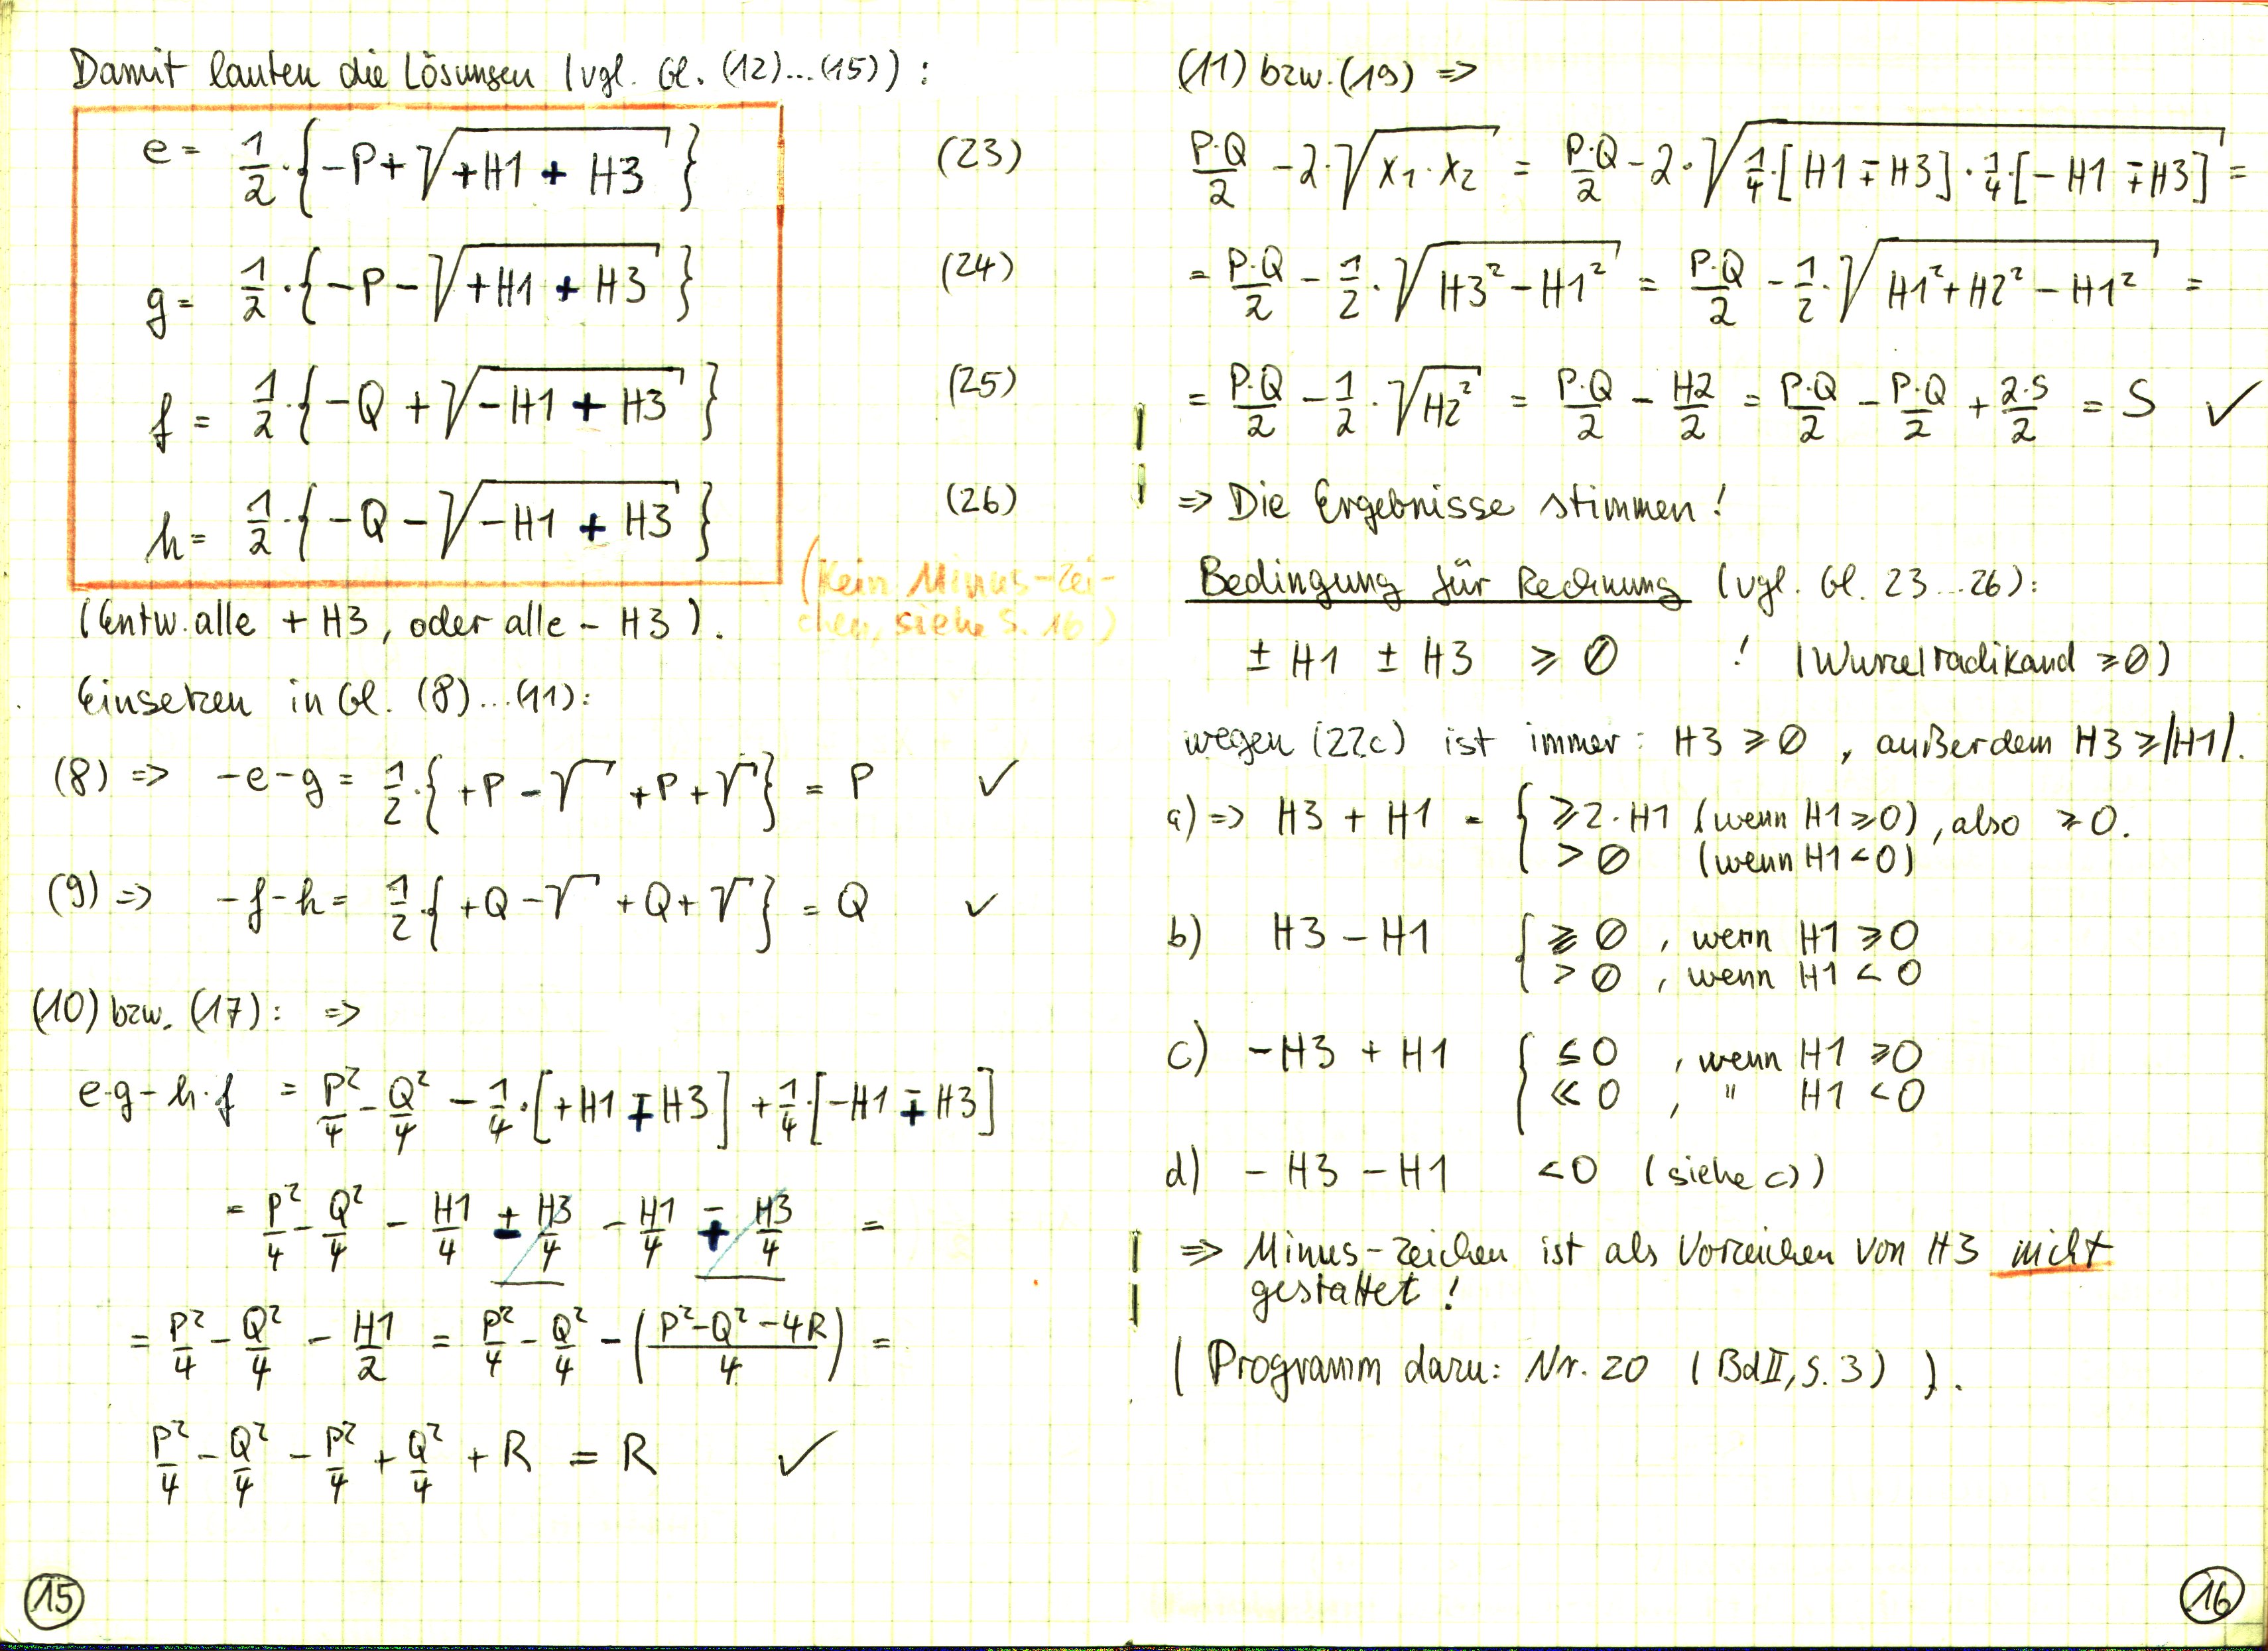 Damit lauten die Lösungen (vgl. Gl. (12)...(15)) :
e = 1/2 · { -P + √(+H1 + H3) } (23)
g = 1/2 · { -P - √(+H1 + H3) } (24)
f = 1/2 · { -Q + √(-H1 + H3) } (25)
h = 1/2 · { -Q - √(-H1 + H3) } (26)
(Kein Minus-Zei-
chen, siehe S. 16)
(Entw. alle + H3, oder alle - H3).
Einsetzen in Gl. (8)...(11):
(8) => -e-g = 1/2 · { +P - √ + P + √ } = P ✓
(9) => -f-h = 1/2 · { +Q - √ + Q + √ } = Q ✓
(10) bzw. (17): =>
e·g - h·f = P²/4 - Q²/4 - 1/4 · [+H1 ∓ H3] + 1/4 · [-H1 ∓ H3]
= P²/4 - Q²/4 - H1/4 ± H3/4 - H1/4 ∓ H3/4 =
= P²/4 - Q²/4 - H1/2 = P²/4 - Q²/4 - ((P²-Q²-4R)/4) =
P²/4 - Q²/4 - P²/4 + Q²/4 + R = R ✓
15
(11) bzw. (19) =>
P·Q/2 - 2·√(x₁·x₂) = P·Q/2 - 2·√(1/4·[H1 ∓ H3] · 1/4·[-H1 ∓ H3]) =
= P·Q/2 - 1/2·√(H3² - H1²) = P·Q/2 - 1/2·√(H1² + H2² - H1²) =
= P·Q/2 - 1/2·√(H2²) = P·Q/2 - H2/2 = P·Q/2 - P·Q/2 + 2·S/2 = S ✓
=> Die Ergebnisse stimmen!
Bedingung für Rechnung (vgl. Gl. 23...26):
± H1 ± H3 ≥ 0 ! (Wurzelradikand ≥ 0)
wegen (22c) ist immer: H3 ≥ 0, außerdem H3 ≥ |H1|.
a) => H3 + H1 = { ≥ 2·H1 (wenn H1 ≥ 0), also ≥ 0.
> 0 (wenn H1 < 0)
b) H3 - H1 { ≥ 0, wenn H1 ≥ 0
> 0, wenn H1 < 0
c) -H3 + H1 { ≤ 0, wenn H1 ≥ 0
≪ 0, " H1 < 0
d) - H3 - H1 < 0 (siehe c))
=> Minus-Zeichen ist als Vorzeichen von H3 nicht
gestattet!
(Programm dazu: Nr. 20 (Bd II, S. 3) ).
16